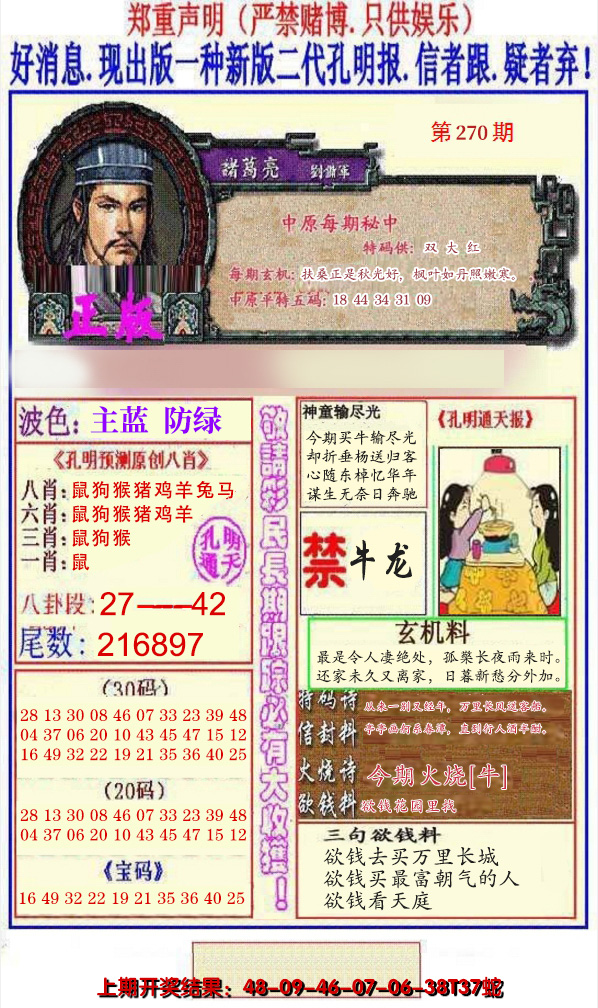 郑重声明（严禁赌博.只供娱乐）
好消息.现出版一种新版二代孔明报.信者跟.疑者弃!
第270期
諸葛亮
劉備軍
中原每期秘中
特码供：双大红
每期玄机：扶桑正是秋光好，枫叶如丹照嫩寒。
中原平特五码：18 44 34 31 09
正版
波色：主蓝 防绿
《孔明预测原创八肖》
八肖：鼠狗猴猪鸡羊兔马
六肖：鼠狗猴猪鸡羊
三肖：鼠狗猴
一肖：鼠
孔明
通天
八卦段：27——42
尾数：216897
（30码）
28 13 30 08 46 07 33 23 39 48
04 37 06 20 10 43 45 47 15 12
16 49 32 22 19 21 35 36 40 25
（20码）
28 13 30 08 46 07 33 23 39 48
04 37 06 20 10 43 45 47 15 12
《宝码》
16 49 32 22 19 21 35 36 40 25
敬請彩民長期跟踪必有大收獲！
神童输尽光
今期买牛输尽光
却折垂杨送归客
心随东棹忆华年
谋生无奈日奔驰
《孔明通天报》
禁 牛龙
玄机料
最是令人凄绝处，孤檠长夜雨来时。
还家未久又离家，日暮新愁分外加。
特码诗
从来一别又经年，万里长风送客船。
信封料
亭亭画舸系春潭，直到行人酒半酣。
火烧诗
今期火烧[牛]
欲钱料
欲钱花园里找
三句欲钱料
欲钱去买万里长城
欲钱买最富朝气的人
欲钱看天庭
上期开奖结果：48-09-46-07-06-38T37蛇